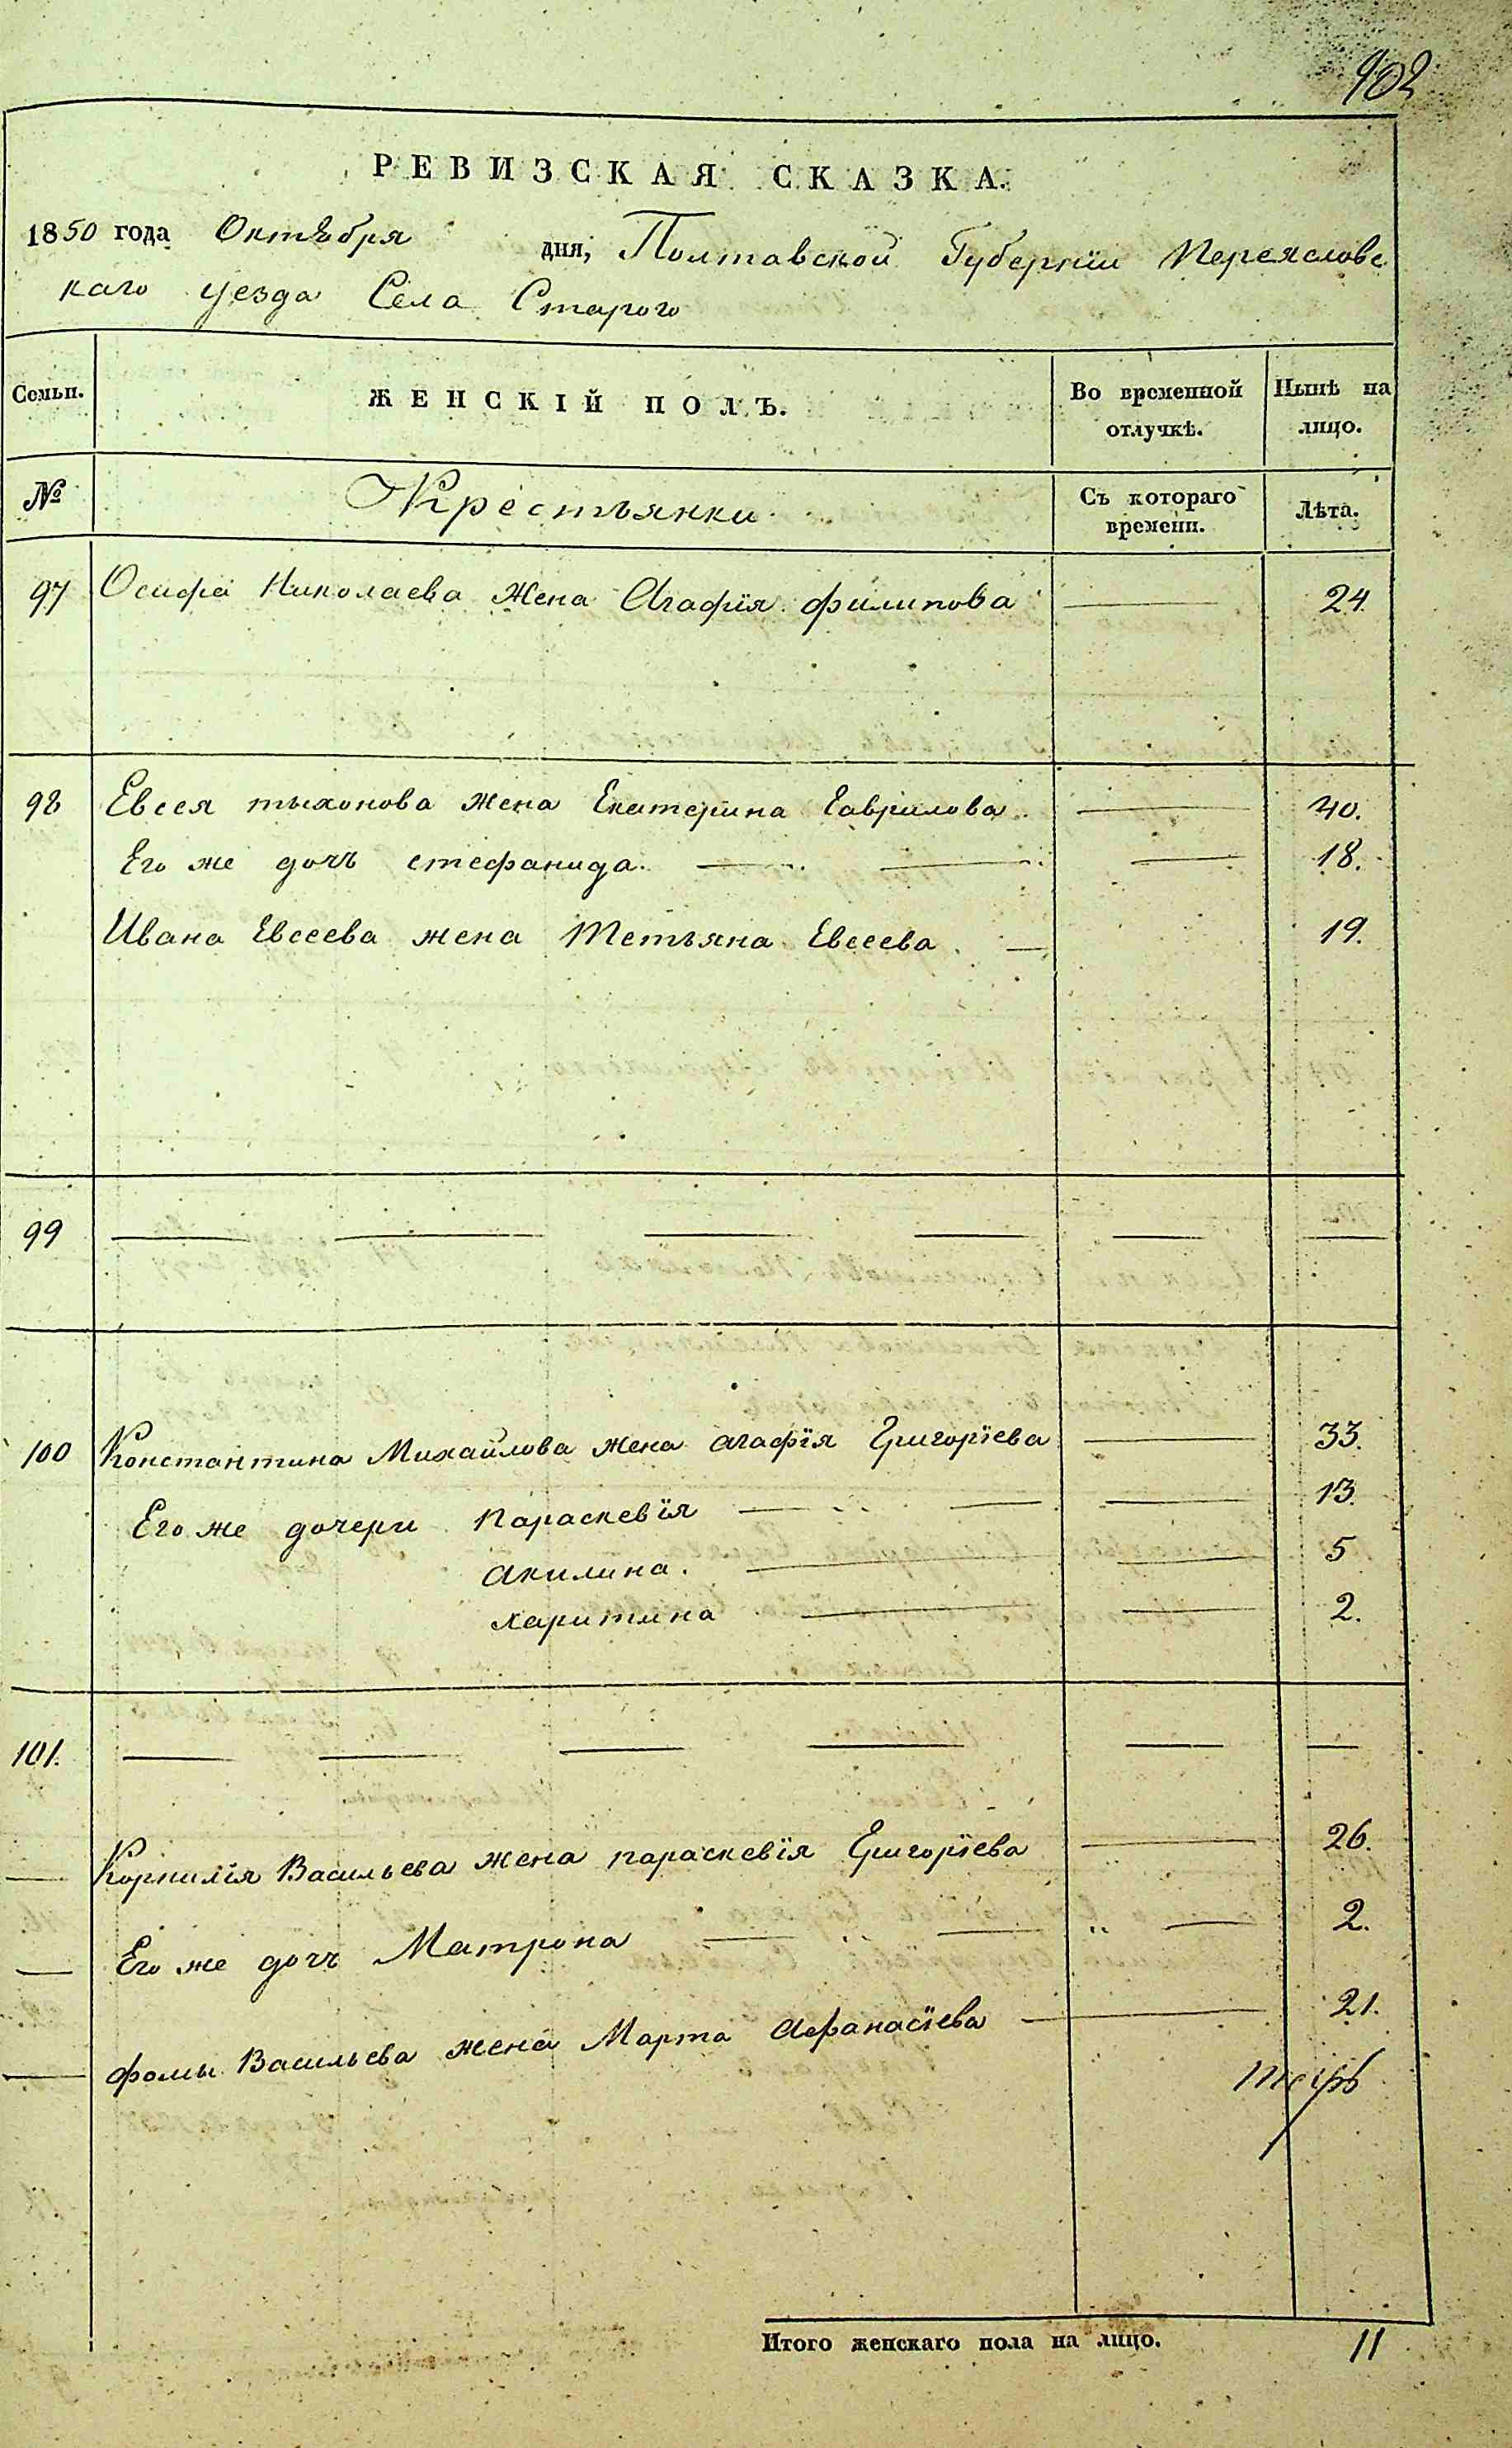 402
РЕВИЗСКАЯ СКАЗКА.
1850 года Октября дня, Полтавской Губернїи Переяславс
каго уезда Села Старого
Семьи. ЖЕНСКІЙ ПОЛЪ. Во временной отлучкѣ. Нынѣ на лицо.
№ Крестьянки Съ котораго времени. Лѣта.
97 Осифа Николаева жена Агафїя филипова — 24.
98 Евсея тыхонова жена Екатерина Гаврилова. — 40.
Его же дочь стефанида. — — — 18.
Ивана Евсеева жена Тетьяна Евсеева. — 19.
99 — — — — — —
100 Константина Михайлова жена агафїя Григорїева — 33.
Его же дочери параскевїя — — — 13.
акилина. — — 5
харитина — — 2.
101. — — — — — —
— Корнилїя Васильева жена параскевїя Григорїева — 26.
— Его же дочь Матрона — — — 2.
— фомы Васильева жена Марта Афанасїева — 21.
Итого женскаго пола на лицо. 11